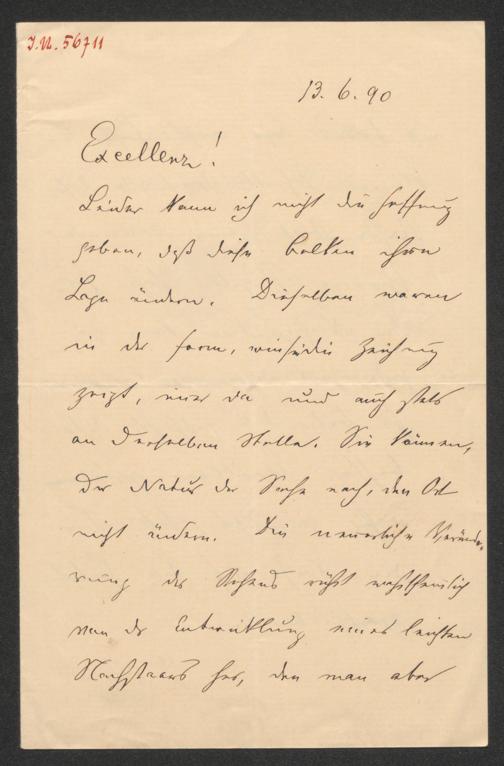 J.N. 56711
13.6.90
Excellenz!
Leider kann ich nicht die Hoffnung
geben, daß diese Balken ihre
Lage ändern. Dieselben waren
in der Form, wie sie die Zeichnung
zeigt, immer da und auch stets
an derselben Stelle. Sie können,
der Natur der Sache nach, den Ort
nicht ändern. Die neuerliche Verände-
rung des Sehens rührt wahrscheinlich
von der Entwicklung eines leichten
Nachstaars her, den man aber